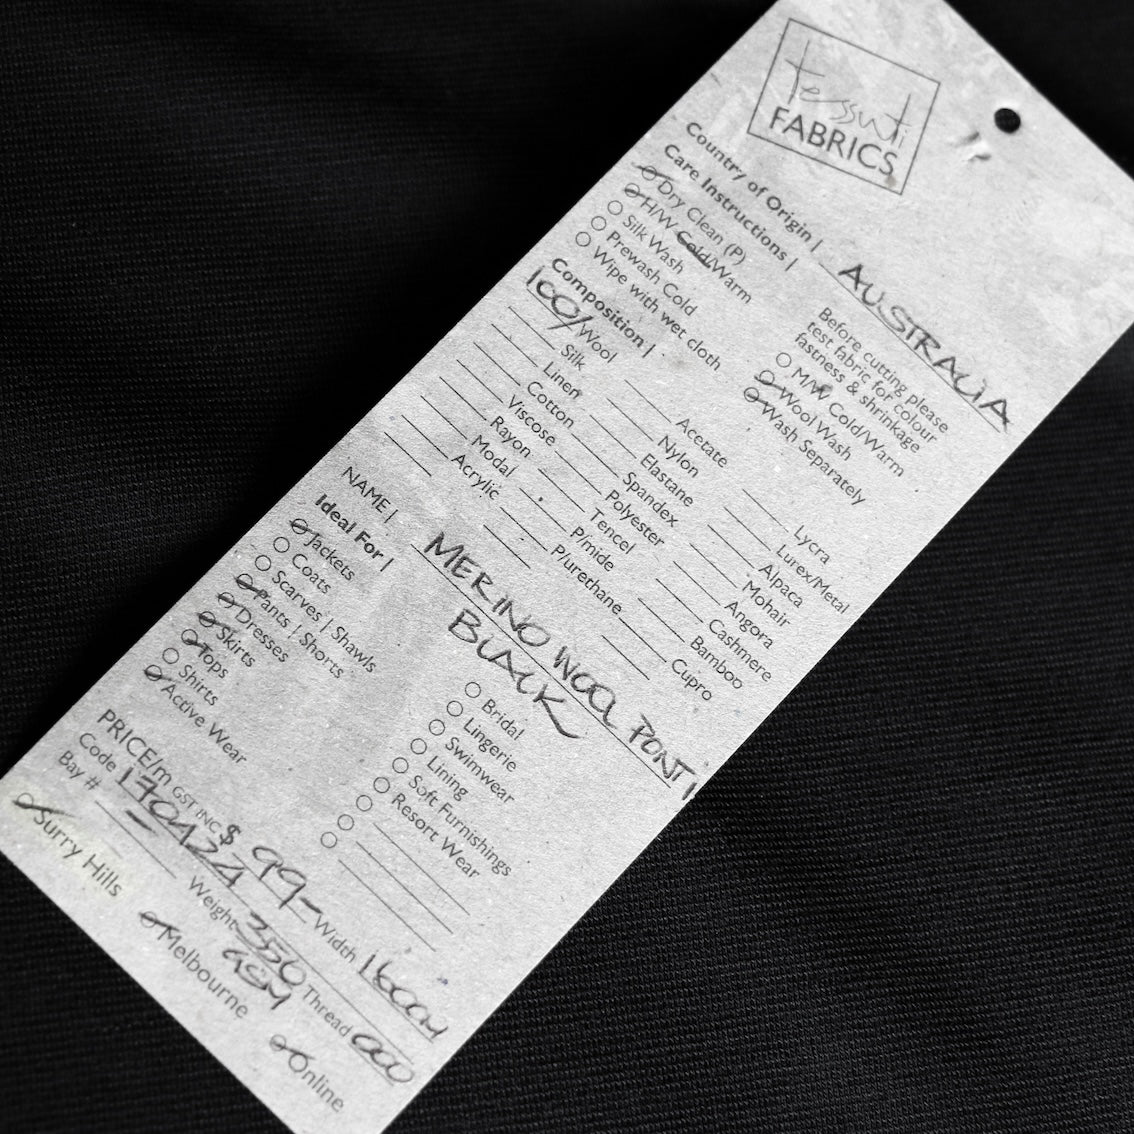 tessuti
FABRICS
Country of Origin | AUSTRALIA
Care Instructions |
Dry Clean (P)
H/W Cold/Warm
Silk Wash
Prewash Cold
Wipe with wet cloth
Before cutting please
test fabric for colour
fastness & shrinkage
M/W Cold/Warm
Wool Wash
Wash Separately
Composition |
100/ Wool
Silk
Linen
Cotton
Viscose
Rayon
Modal
Acrylic
Acetate
Nylon
Elastane
Spandex
Polyester
Tencel
P/mide
P/urethane
Lycra
Lurex/Metal
Alpaca
Mohair
Angora
Cashmere
Bamboo
Cupro
NAME | MERINO WOOL PONTI
BLACK
Ideal For |
Jackets
Coats
Scarves | Shawls
Pants | Shorts
Dresses
Skirts
Tops
Shirts
Active Wear
Bridal
Lingerie
Swimwear
Lining
Soft Furnishings
Resort Wear
PRICE/m GST INC $ 99- Width 160CM
Code Weight 350 Thread
GSM
Bay #
Surry Hills
Melbourne
Online